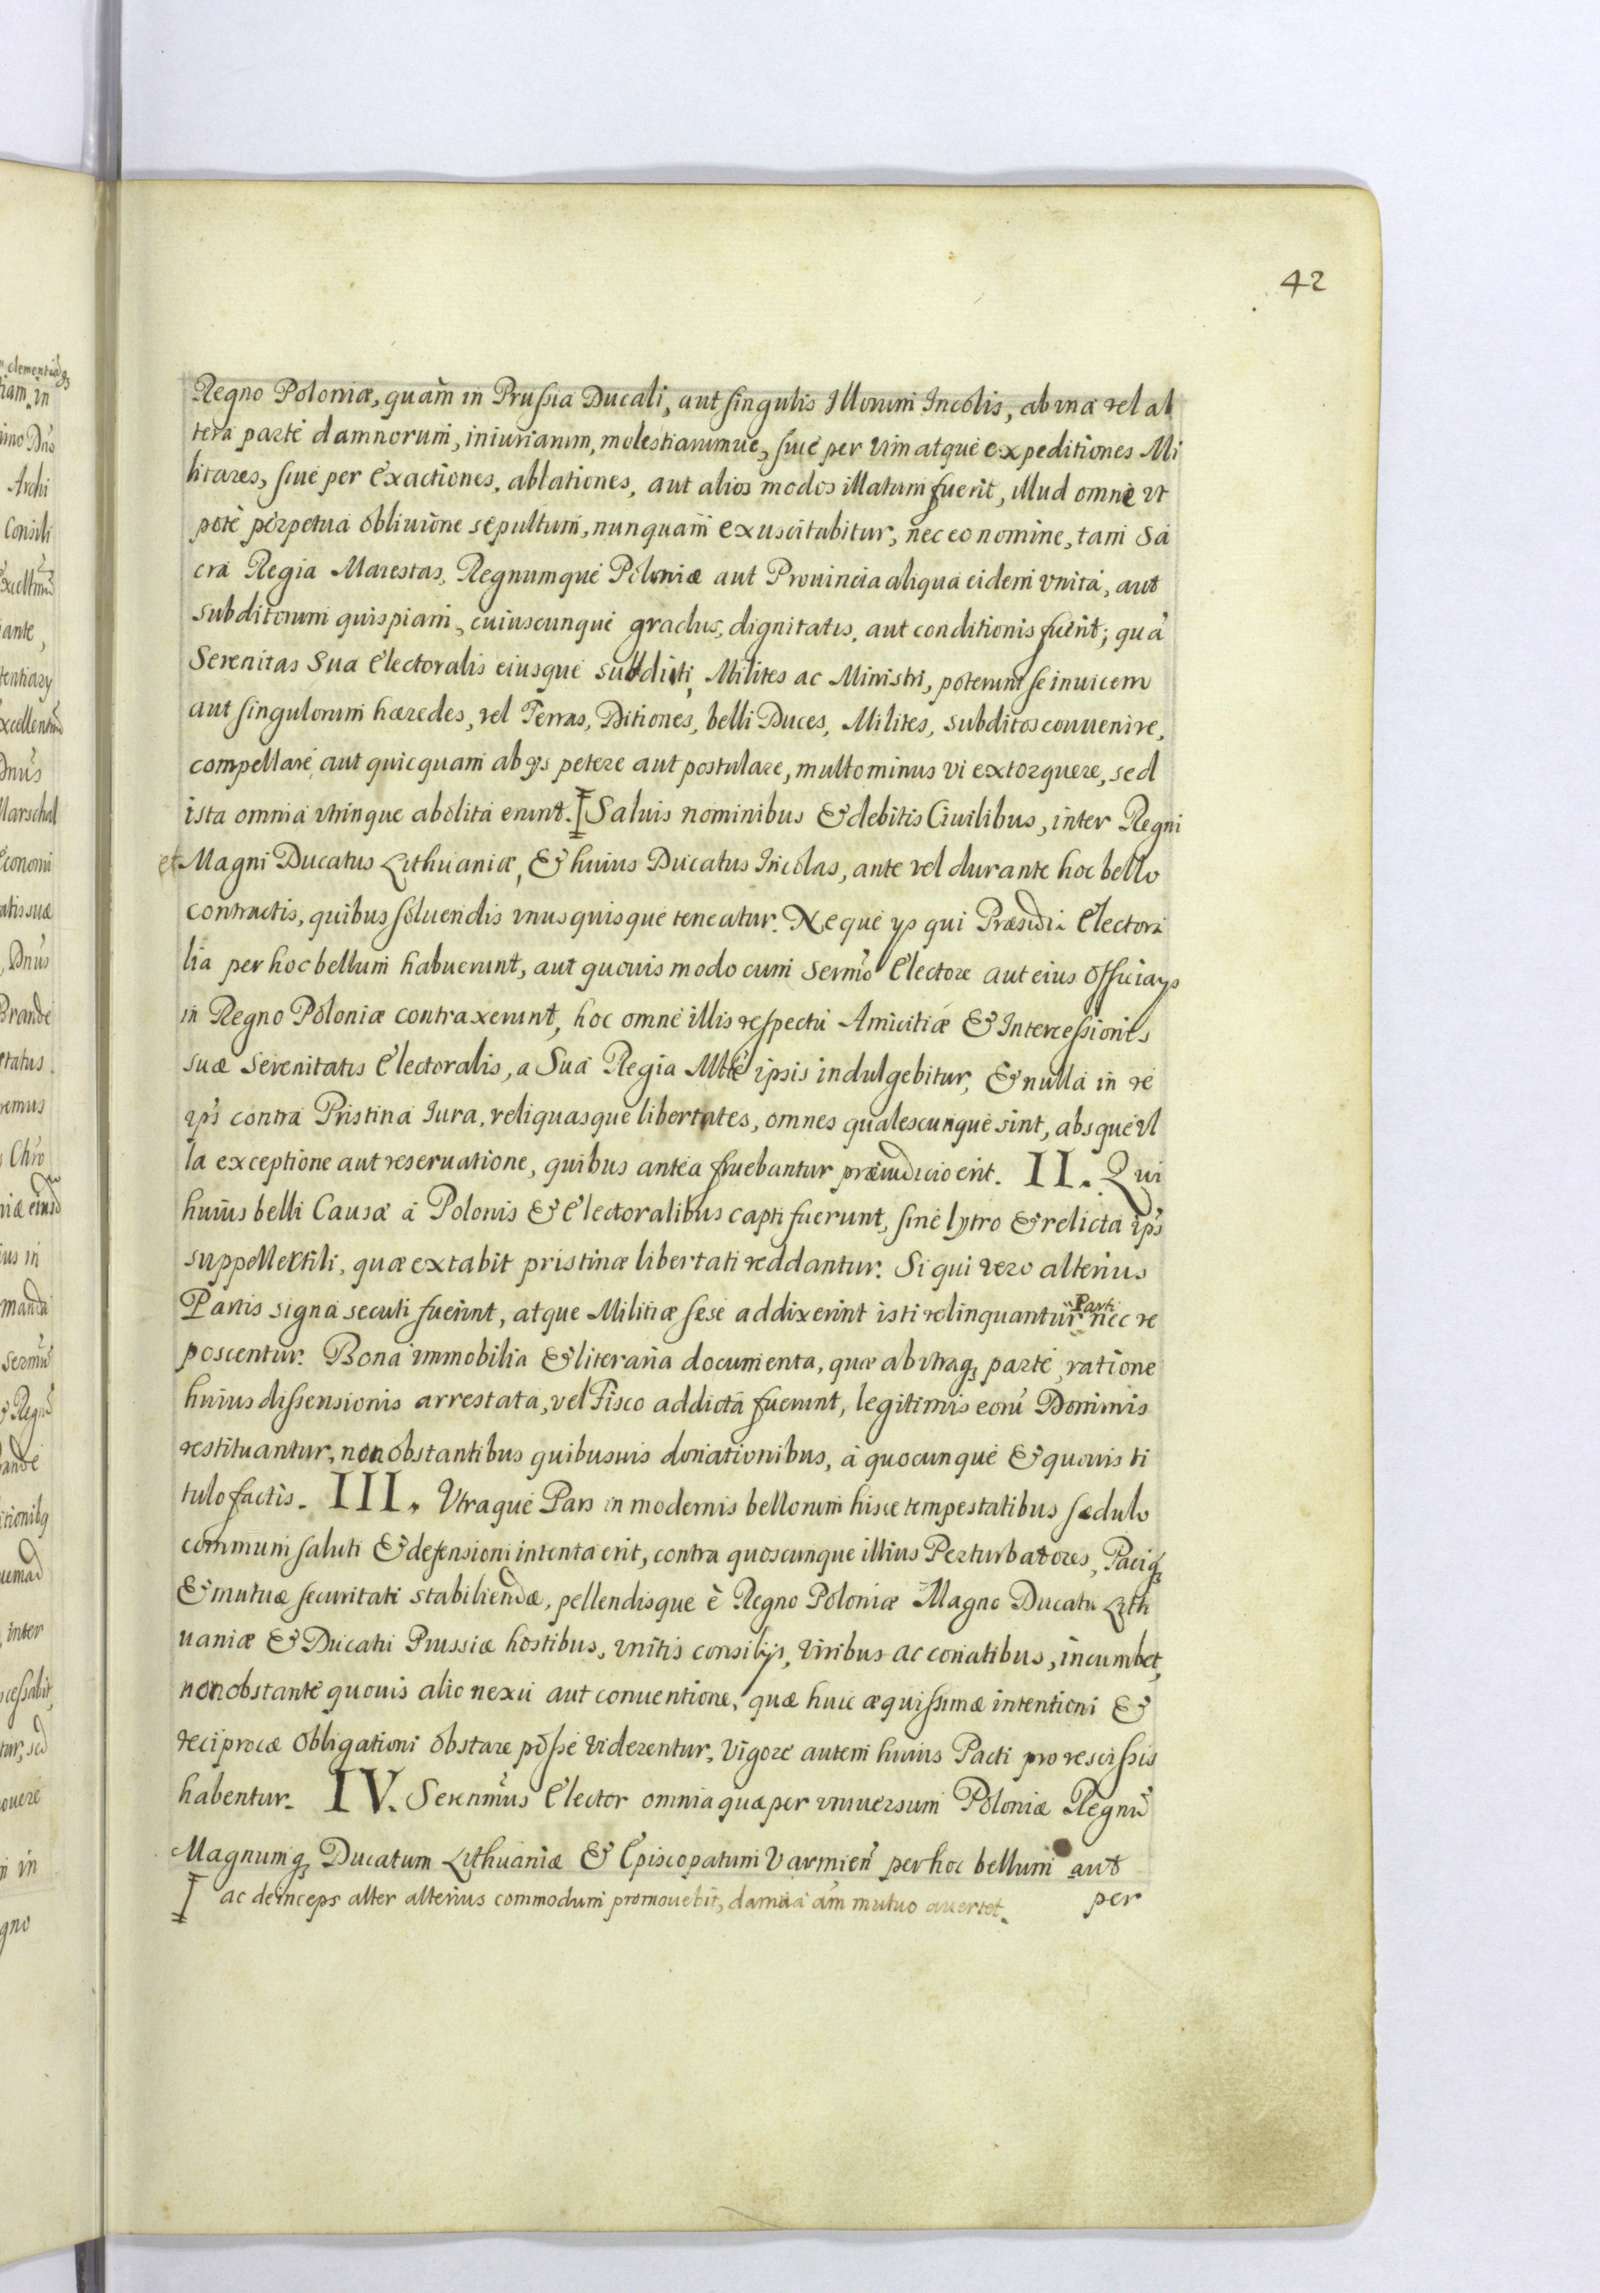 42
Regno Poloniæ, quam in Prussia Ducali, aut singulis Illorum Incolis, ab una vel al
tera parte damnorum, iniuriarum, molestiarumue, siue per vim atque expeditiones Mi
litares, siue per exactiones, ablationes, aut alios modos illatum fuerit, illud omne ut
pote perpetua obliuione sepultum, nunquam exuscitabitur, nec eo nomine, tam Sa
cra Regia Maiestas, Regnumque Poloniæ aut Prouincia aliqua eidem vnita, aut
subditorum quispiam, cuiuscunque gradus, dignitatis, aut conditionis fuerit; quà
Serenitas Sua Electoralis eiusque subditi, Milites ac Ministri, poterunt se inuicem
aut singulorum hæredes, vel Terras, Ditiones, belli Duces, Milites, subditos conuenire,
compellare, aut quicquam ab ÿs petere aut postulare, multo minus vi extorquere, sed
ista omnia vtrinque abolita erunt. Saluis nominibus & debitis Ciuilibus, inter Regni
et Magni Ducatus Lithuaniæ, & huius Ducatus Incolas, ante vel durante hoc bello
contractis, quibus soluendis vnusquisque teneatur. Neque ÿs qui Præsidia Electora
lia per hoc bellum habuerunt, aut quouis modo cum Sermo Electore aut eius Officiaÿs
in Regno Poloniæ contraxerunt, hoc omne illis respectu Amicitiæ & Intercessionis
suæ Serenitatis Electoralis, a Sua Regia Mtte ipsis indulgebitur, & nulla in re
ips contra Pristina Iura, reliquasque libertates, omnes qualescunque sint, absque vl
la exceptione aut reseruatione, quibus antea fruebantur præiudicio erit. II. Qui
huius belli Causa à Polonis & Electoralibus capti fuerunt, sine lytro & relicta ips
suppellectili, quæ extabit pristinæ libertati reddantur. Si qui vero alterius
Partis signa secuti fuerint, atque Militiæ sese addixerint isti relinquantur Parti nec re
poscentur. Bona immobilia & literaria documenta, quæ ab vtraq; parte, ratione
huius dissensionis arrestata, vel Fisco addicta fuerunt, legitimis eorū Dominis
restituantur, non obstantibus quibusuis donationibus, à quocunque & quouis ti
tulo factis. III. Vtraque Pars in modernis bellorum hisce tempestatibus sedulo
communi saluti & defensioni intenta erit, contra quoscunque illius Perturbatores, Paciq;
& mutuæ securitati stabiliendæ, pellendisque è Regno Poloniæ Magno Ducatu Lith
uaniæ & Ducatu Prussiæ hostibus, vnitis consilijs, viribus ac conatibus, incumbet,
non obstante quouis alio nexu aut conuentione, quæ huic æquissimæ intentioni &
reciprocæ obligationi obstare posse viderentur, vigore autem huius Pacti pro rescissis
habentur. IV. Serenmus Elector omnia quæ per vniuersum Poloniæ Regnū
Magnumq; Ducatum Lithuaniæ & Episcopatum Varmien per hoc bellum aut
ac deinceps alter alterius commodum promouebit, damna am mutuo auertet.
per